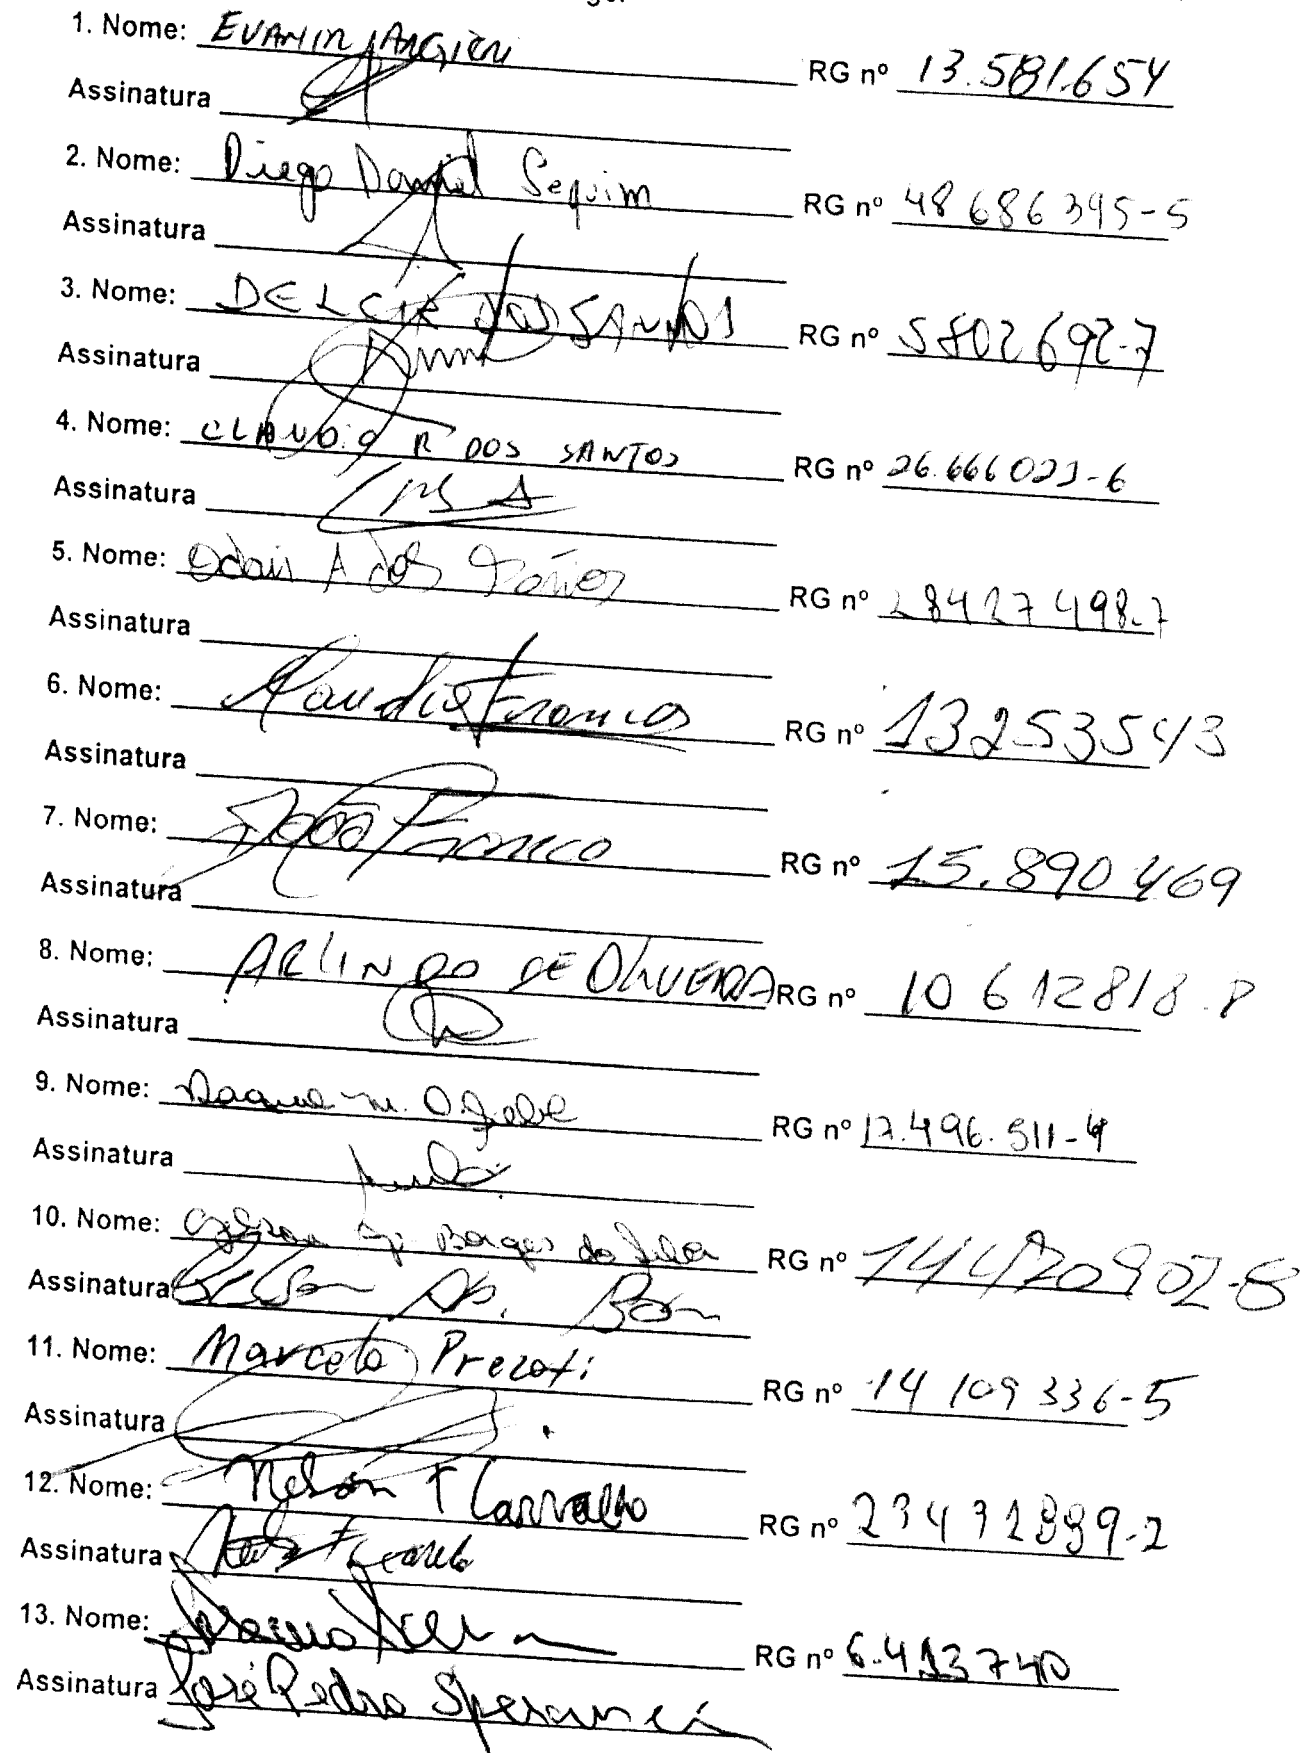 1. Nome: EVANIR ANGIERI RG nº 13.581.654
Assinatura
2. Nome: Diego Daniel Sequim RG nº 48 686 395-5
Assinatura
3. Nome: DELCIR DOS SANTOS RG nº 5802692-7
Assinatura
4. Nome: CLAUDIO R DOS SANTOS RG nº 26.666021-6
Assinatura
5. Nome: Odair A dos RG nº 28427498-7
Assinatura
6. Nome: Claudio Franco RG nº 13253543
Assinatura
7. Nome: João Franco RG nº 15.890 469
Assinatura
8. Nome: ARLINDO DE OLIVEIRA RG nº 10 612818-8
Assinatura
9. Nome: RG nº 17.496.511-4
Assinatura
10. Nome: Ap. Borges da Silva RG nº 14470902-8
Assinatura
11. Nome: Marcelo Prezoti RG nº 14 109 336-5
Assinatura
12. Nome: Nelson F Carvalho RG nº 23432889-2
Assinatura
13. Nome: RG nº 6.413740
Assinatura José Pedro